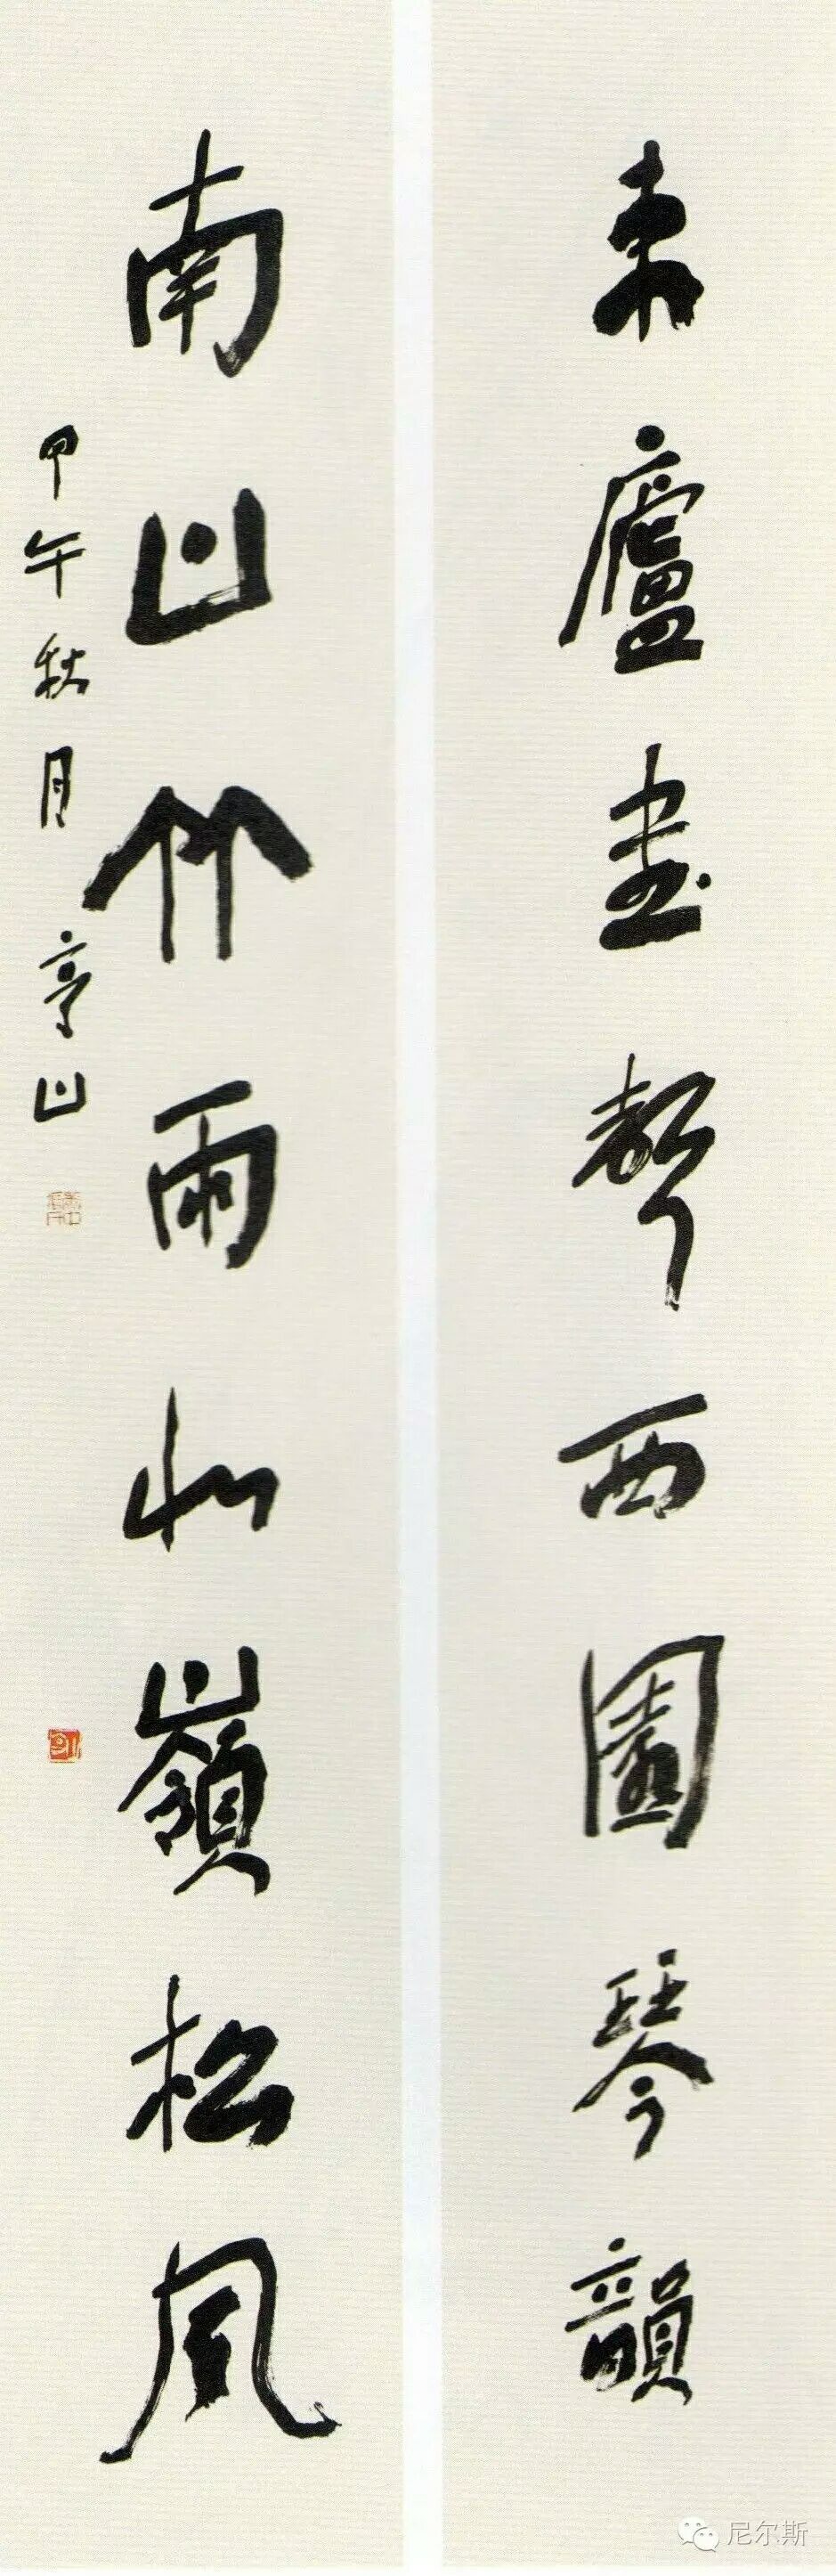 東廬書聲西園琴韻
南山竹雨北嶺松風
甲午秋月亭山
尼尔斯